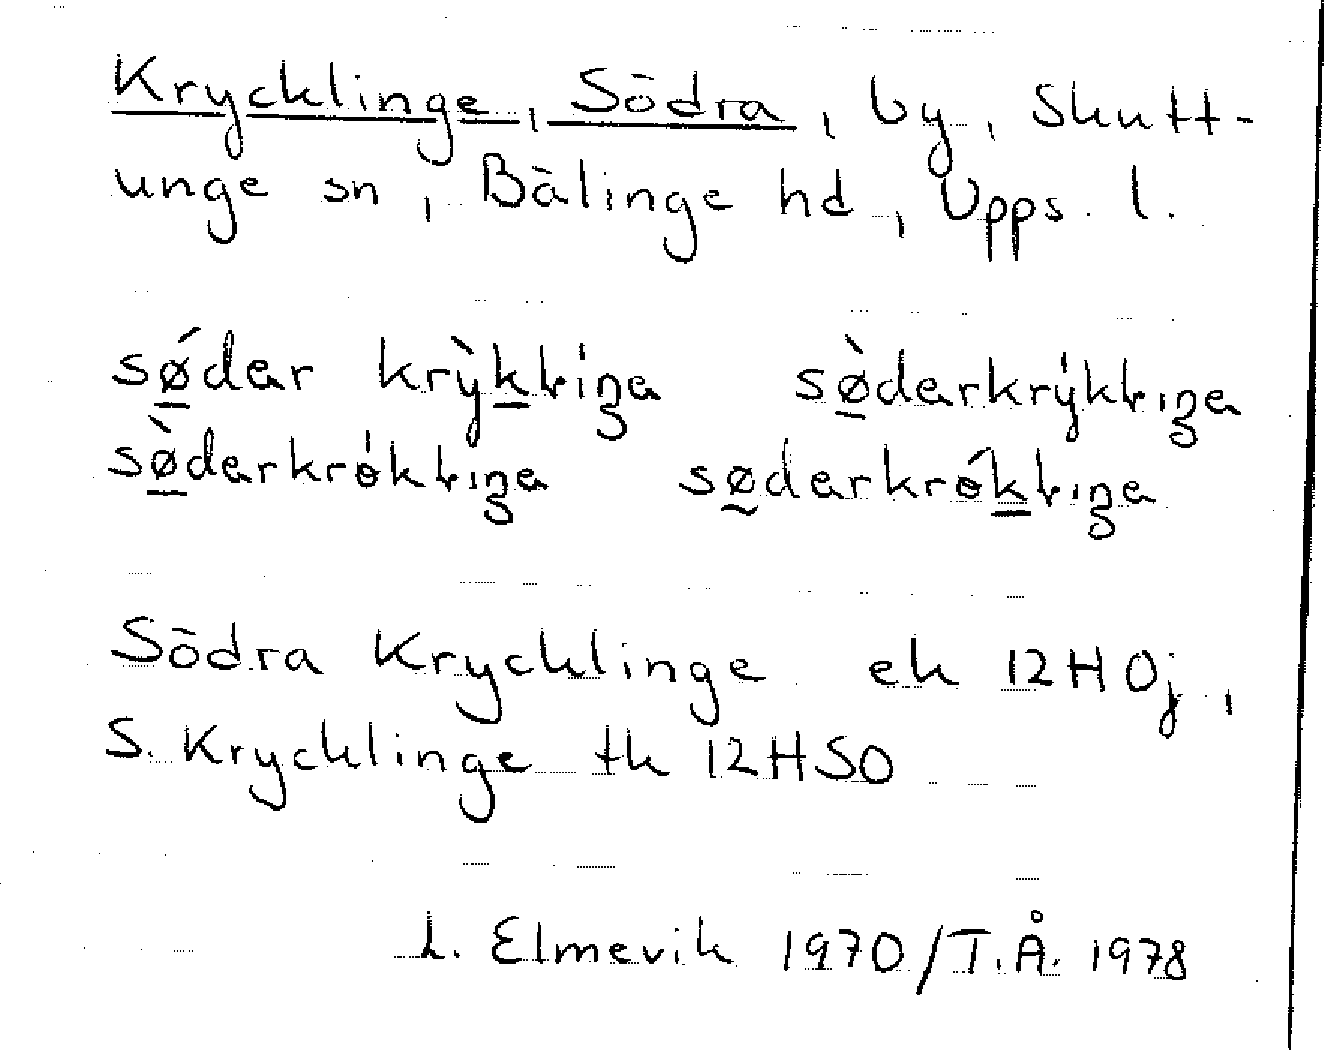 Krycklinge, Södra, by, Skutt-
unge sn, Bälinge hd, Upps. l.
sǿ̲dar krỳk̲lɩŋa sø̲̀darkrýklɩŋa
sø̲̀darkrɵ́klɩŋa sø̰darkrɵ́k̲lɩŋa
Södra Krycklinge ek 12H0j,
S. Krycklinge tk 12HSO
L. Elmevik 1970/T.Å. 1978